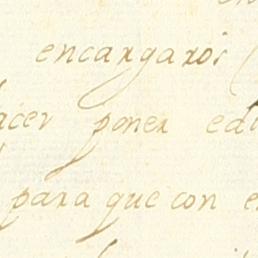 encargaros
acer poner edi
para que con e